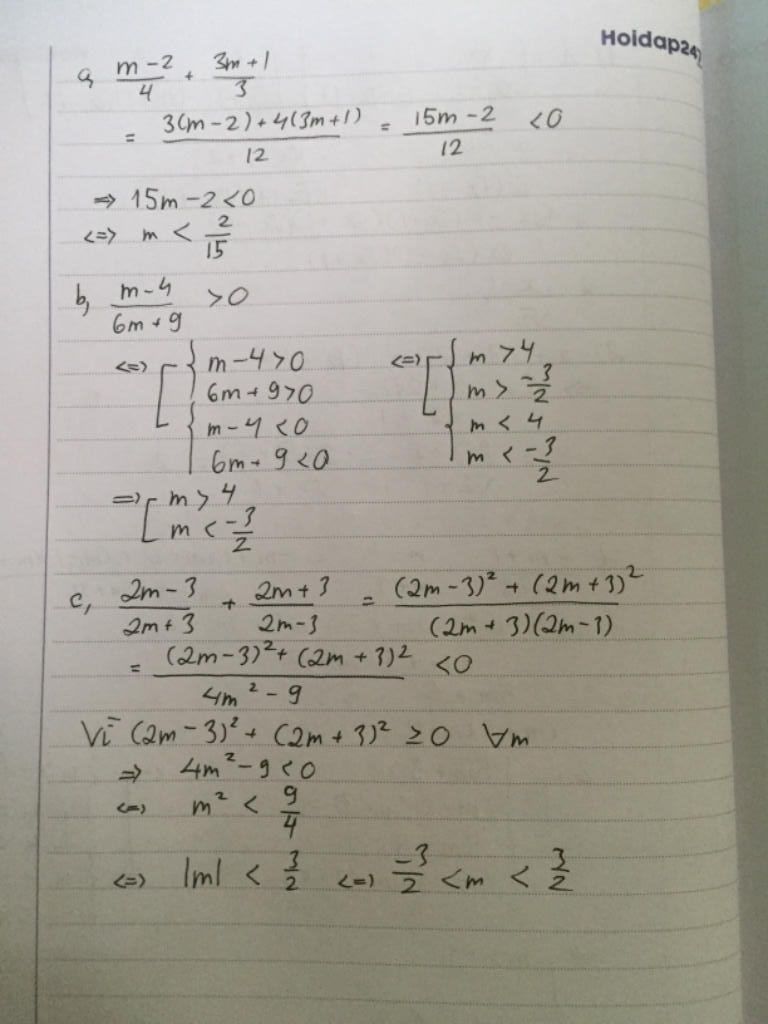 Hoidap247
a, (m-2)/4 + (3m+1)/3
= (3(m-2)+4(3m+1))/12 = (15m-2)/12 <0
=> 15m-2<0
<=> m < 2/15
b, (m-4)/(6m+9) >0
<=> [ { m-4>0 <=> [ { m >4
6m+9>0 m > -3/2
{ m-4<0 { m < 4
6m+9<0 m < -3/2
=> [ m > 4
m < -3/2
c, (2m-3)/(2m+3) + (2m+3)/(2m-3) = ((2m-3)² + (2m+3)²)/((2m+3)(2m-3))
= ((2m-3)² + (2m+3)²)/(4m²-9) <0
Vì (2m-3)² + (2m+3)² ≥0 ∀m
=> 4m²-9<0
<=> m² < 9/4
<=> |m| < 3/2 <=> -3/2 <m < 3/2